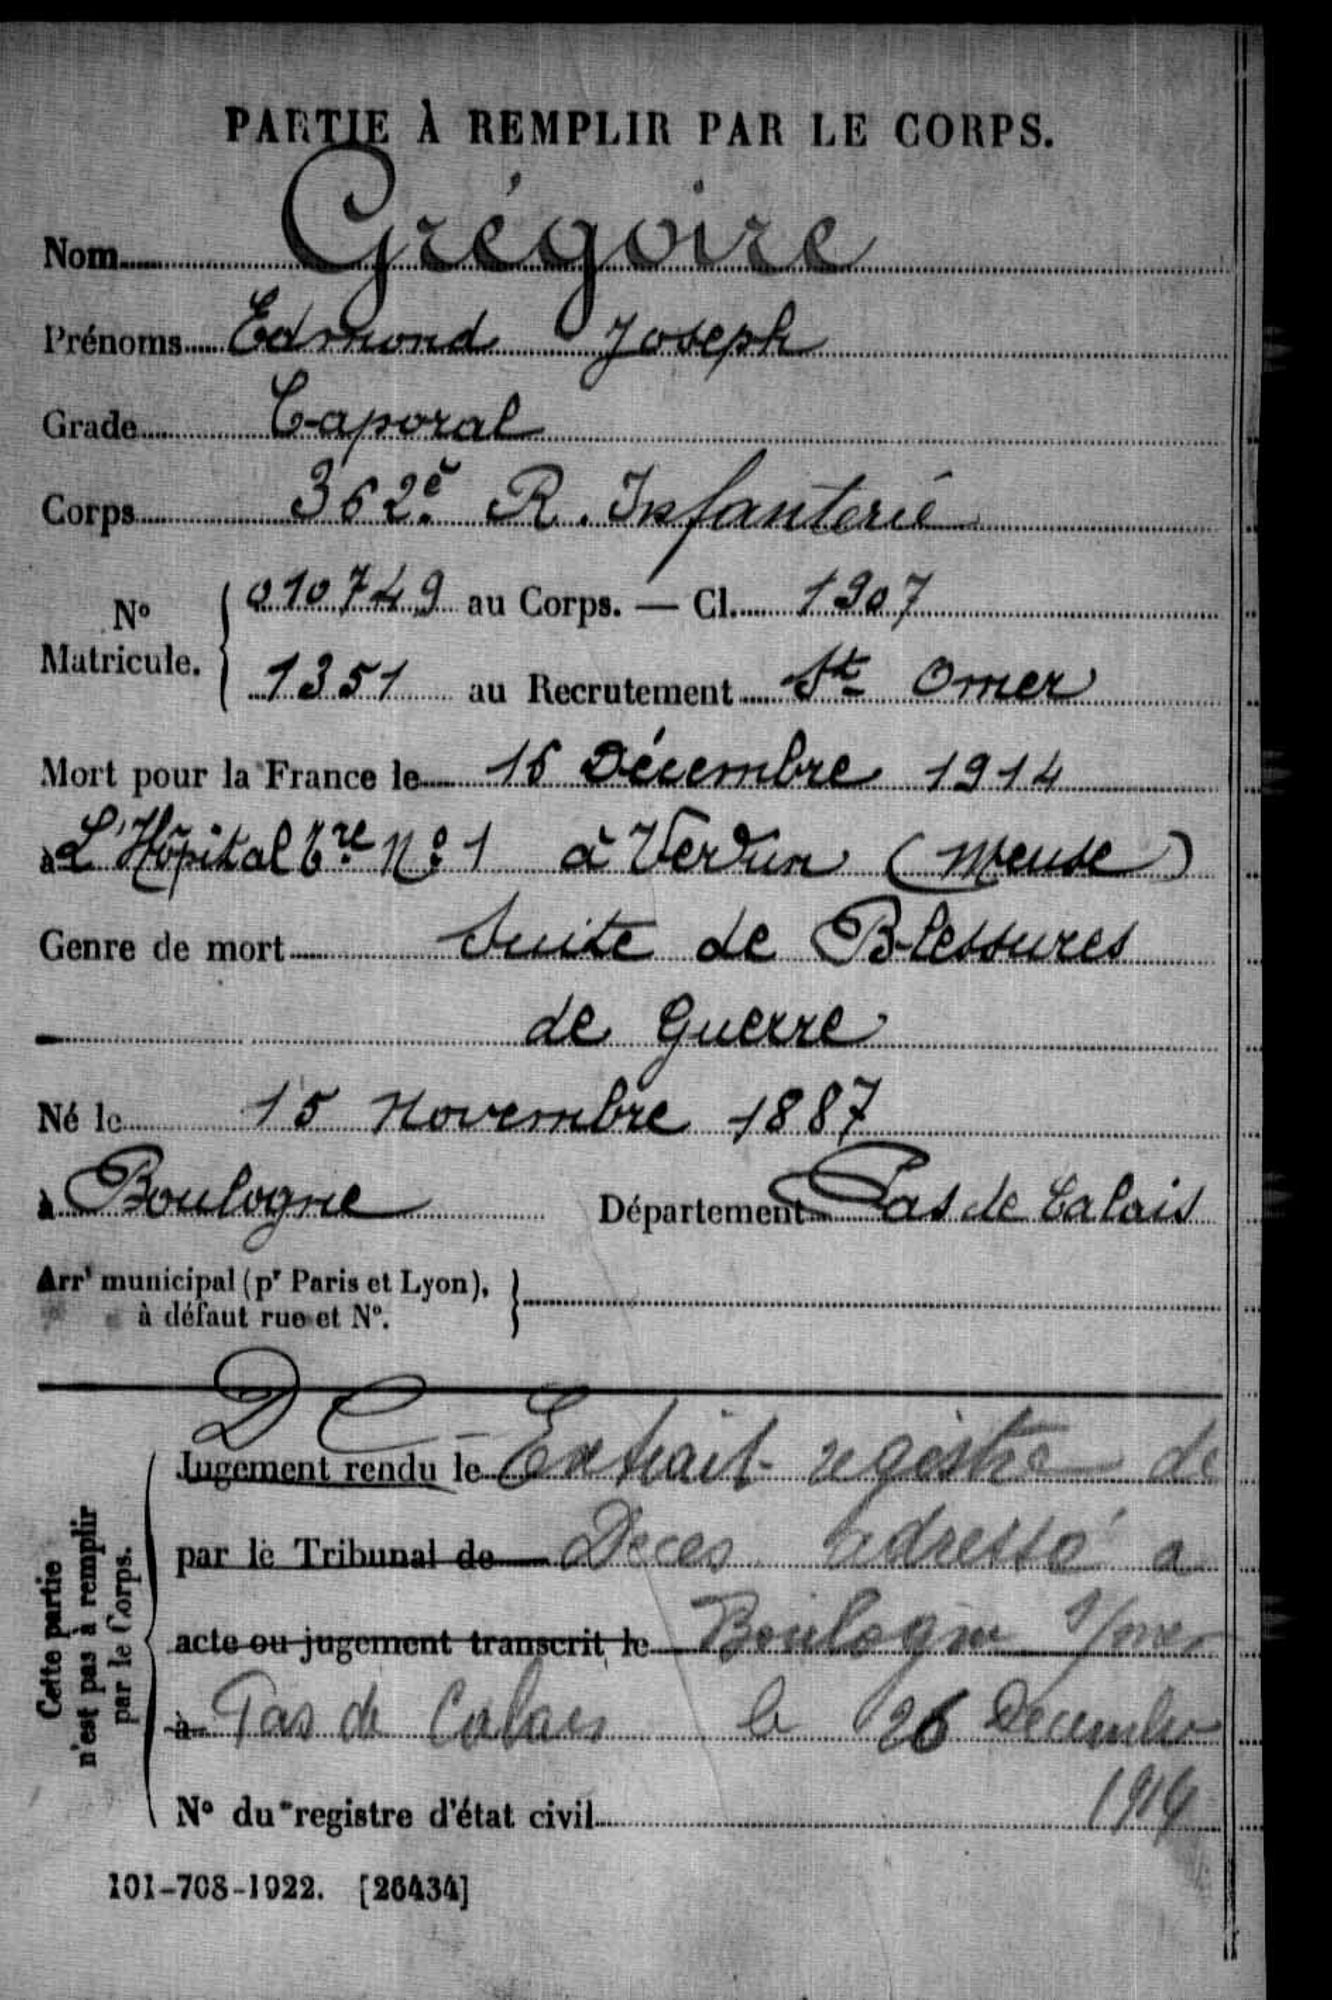 PARTIE À REMPLIR PAR LE CORPS.
Nom Grégoire
Prénoms Edmond Joseph
Grade Caporal
Corps 362e R. Infanterie
No Matricule. 010749 au Corps. — Cl. 1907
1351 au Recrutement St Omer
Mort pour la France le 16 Décembre 1914
à L'Hôpital Tre No 1 à Verdun (Meuse)
Genre de mort Suite de Blessures
de Guerre
Né le 15 Novembre 1887
à Boulogne Département Pas de Calais
Arrt municipal (pr Paris et Lyon),
à défaut rue et No.
DC
Jugement rendu le Extrait registre de
par le Tribunal de Deces adressé a
acte ou jugement transcrit le Boulogne s/mer
à Pas de Calais le 26 Decembre
1914
No du registre d'état civil
Cette partie
n'est pas à remplir
par le Corps.
101-708-1922. [26434]